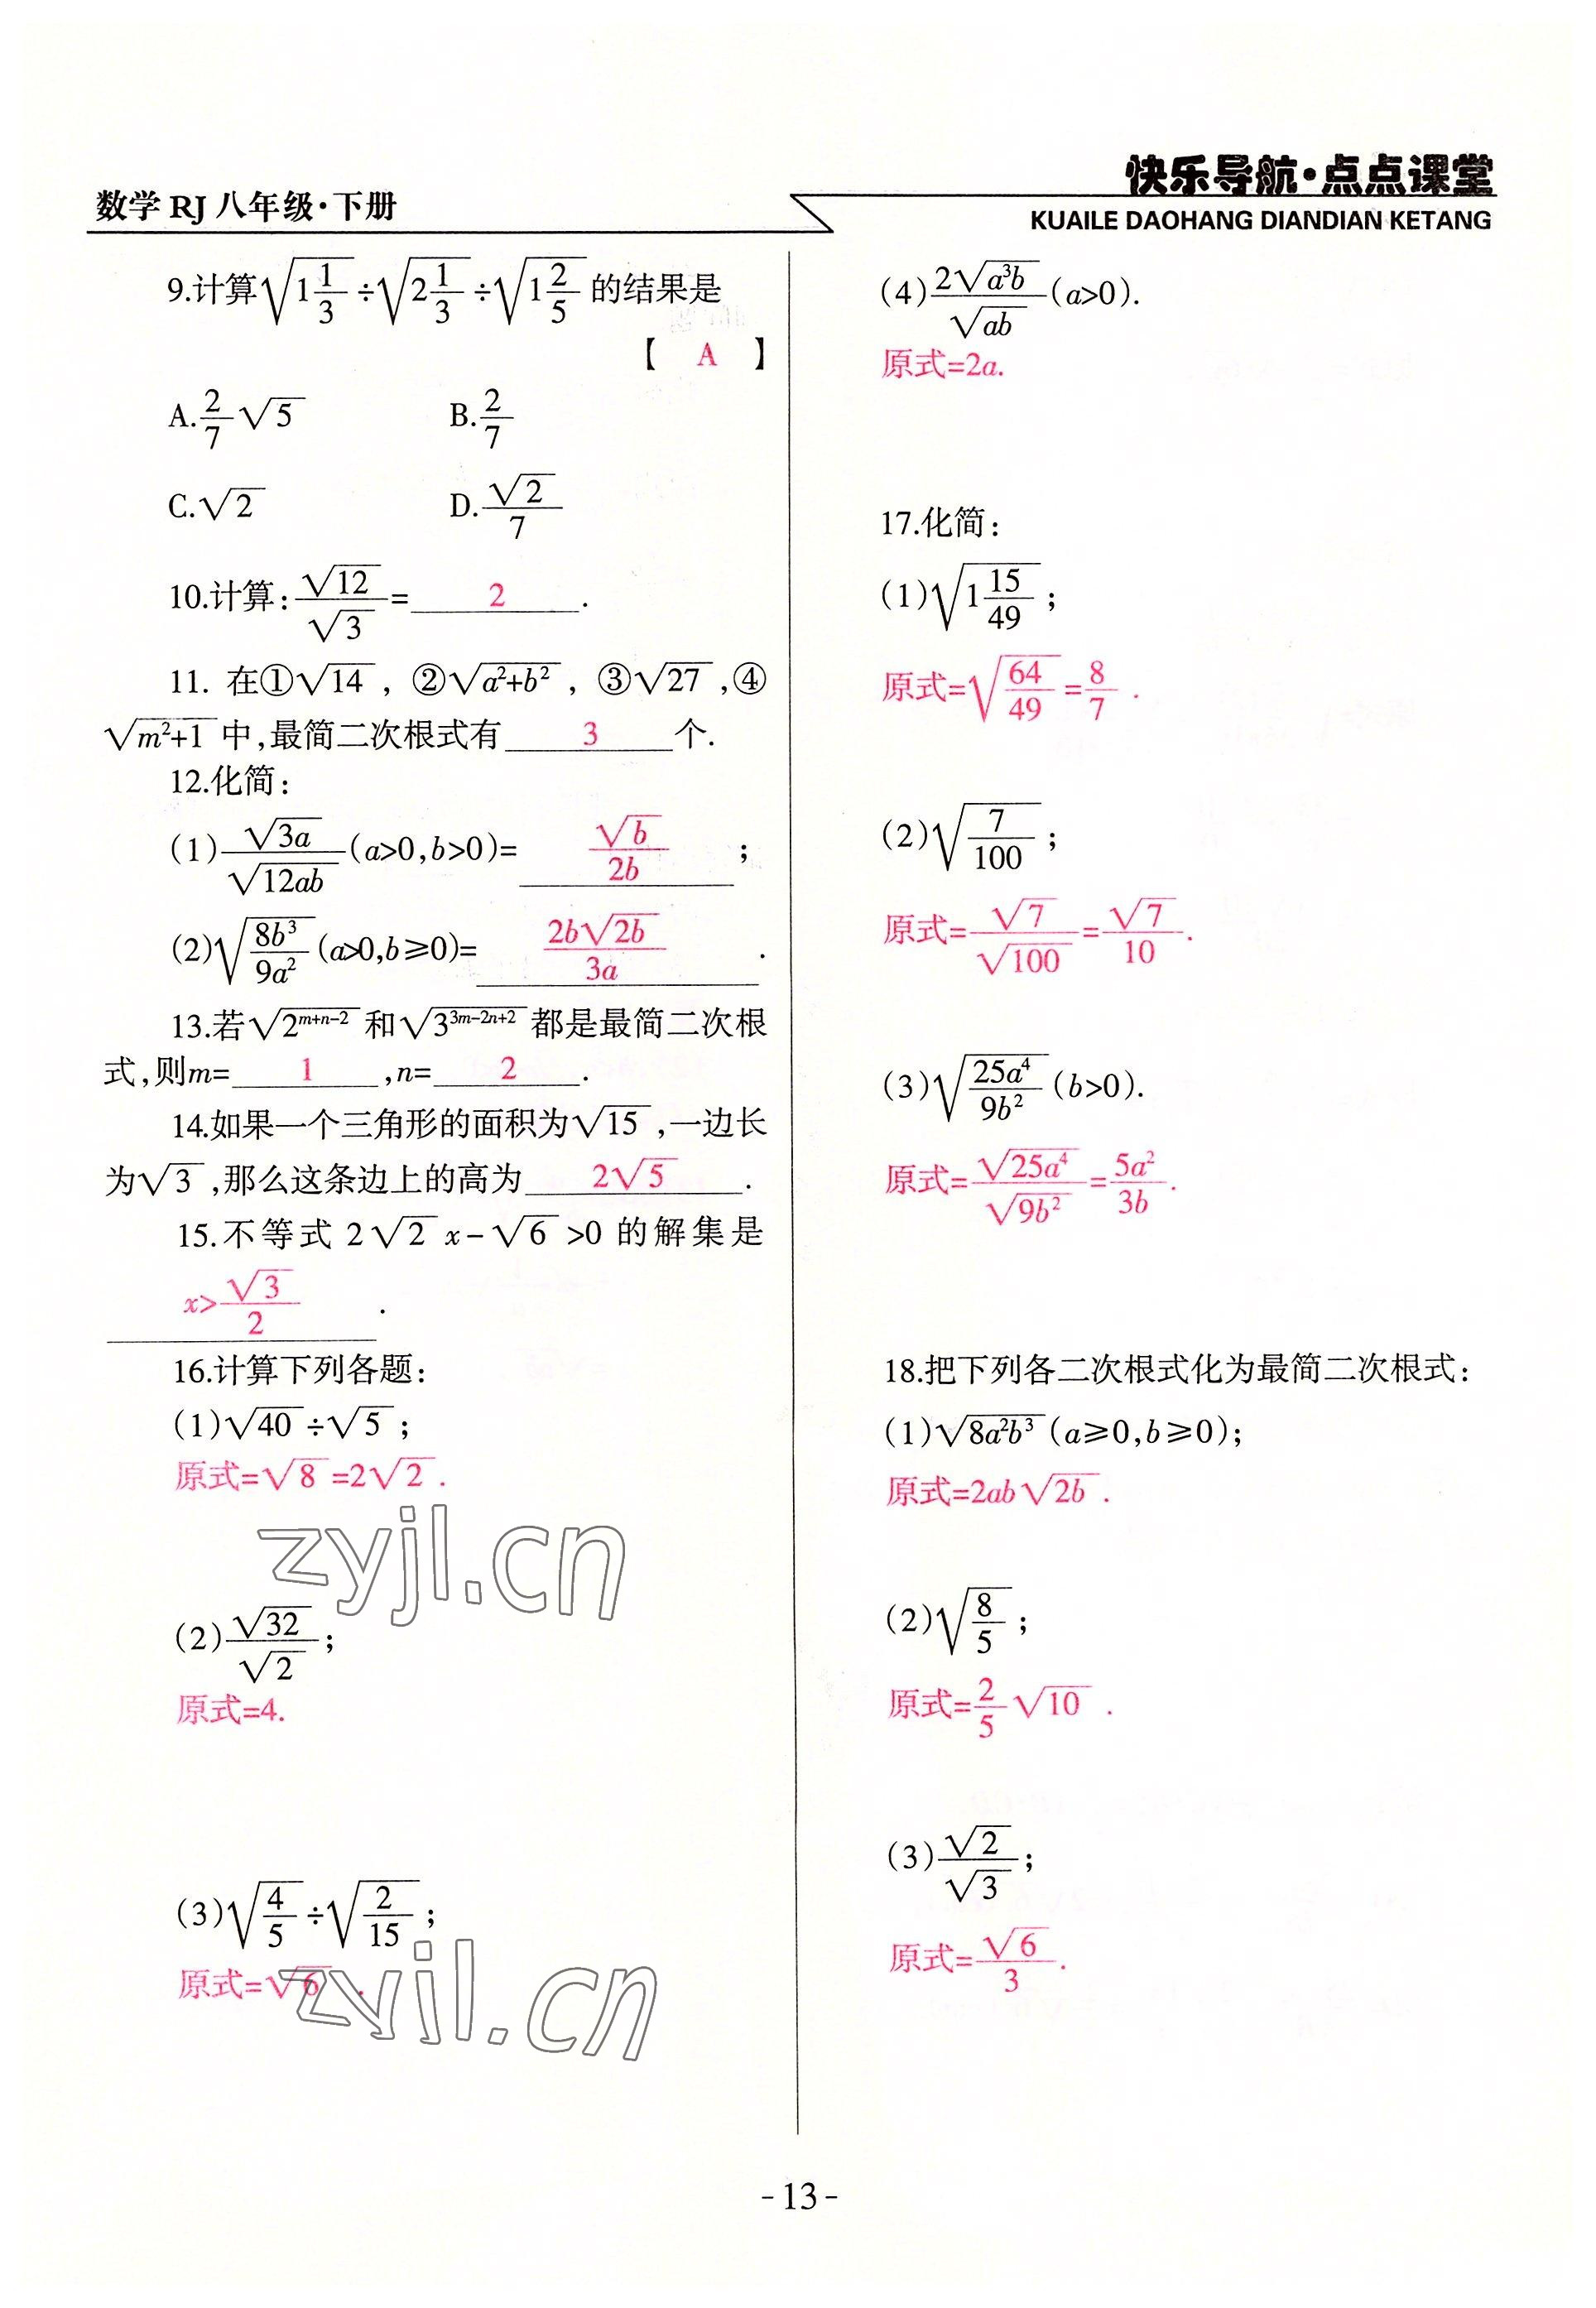 数学 RJ 八年级·下册
快乐导航·点点课堂
KUAILE DAOHANG DIANDIAN KETANG
9.计算√(1 1/3)÷√(2 1/3)÷√(1 2/5)的结果是
【 A 】
A.2/7 √5 B.2/7
C.√2 D.√2/7
10.计算:√12/√3=2.
11. 在①√14, ②√(a²+b²), ③√27,④
√(m²+1)中,最简二次根式有3个.
12.化简:
(1)√(3a)/√(12ab)(a>0,b>0)=√b/2b;
(2)√(8b³/9a²)(a>0,b≥0)=2b√(2b)/3a.
13.若√(2^(m+n-2))和√(3^(3m-2n+2))都是最简二次根
式,则m=1,n=2.
14.如果一个三角形的面积为√15,一边长
为√3,那么这条边上的高为2√5.
15.不等式 2√2 x-√6>0 的解集是
x>√3/2.
16.计算下列各题:
(1)√40÷√5;
原式=√8=2√2.
(2)√32/√2;
原式=4.
(3)√(4/5)÷√(2/15);
原式=√6.
(4)2√(a³b)/√(ab)(a>0).
原式=2a.
17.化简:
(1)√(1 15/49);
原式=√(64/49)=8/7.
(2)√(7/100);
原式=√7/√100=√7/10.
(3)√(25a⁴/9b²)(b>0).
原式=√(25a⁴)/√(9b²)=5a²/3b.
18.把下列各二次根式化为最简二次根式:
(1)√(8a²b³)(a≥0,b≥0);
原式=2ab√(2b).
(2)√(8/5);
原式=2/5 √10.
(3)√2/√3;
原式=√6/3.
zyjl.cn
zyjl.cn
-13-